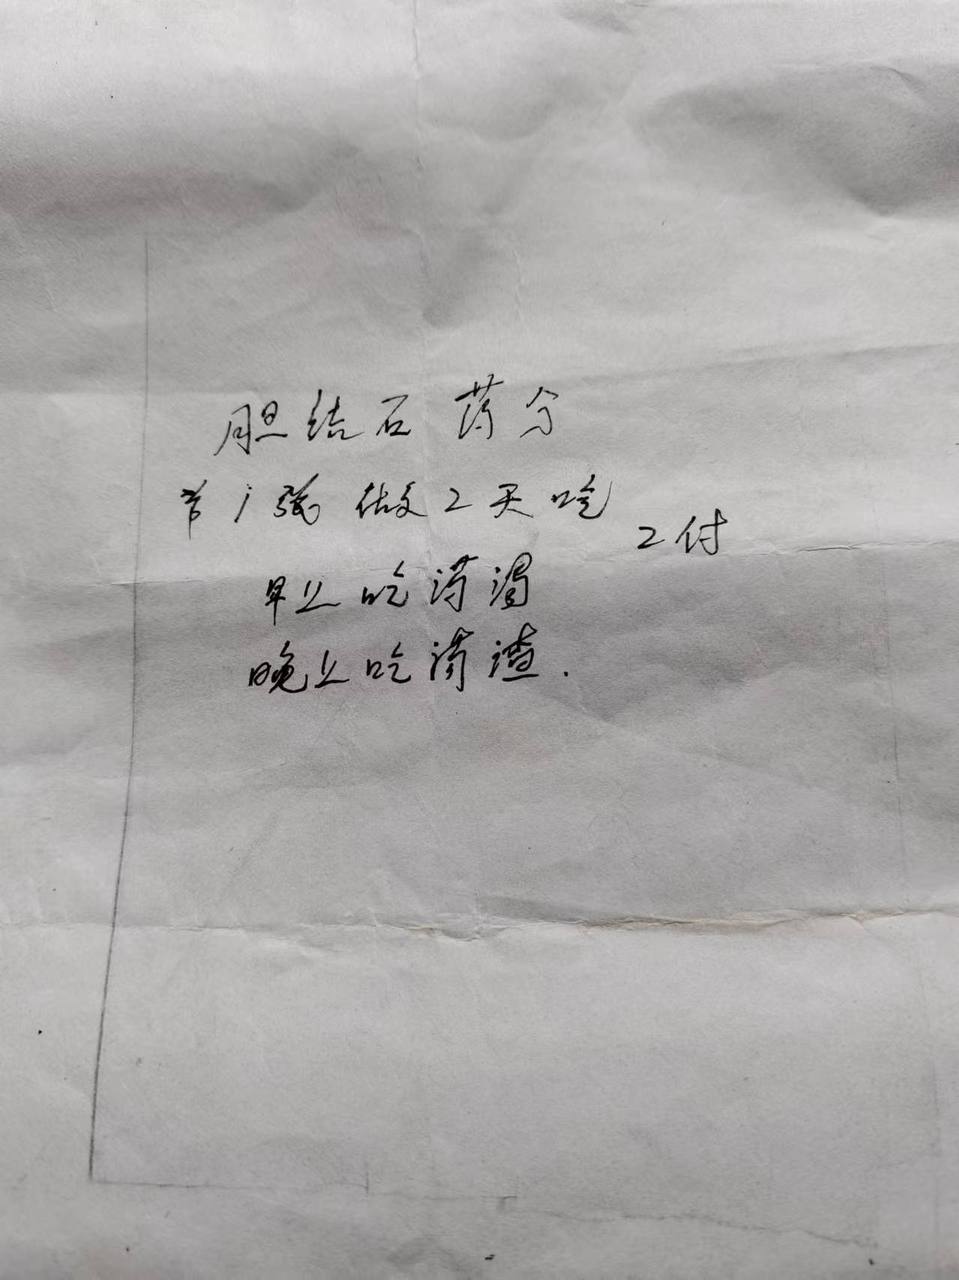 胆结石药方
第1张做2天吃 2付
早上吃药汤
晚上吃药渣.